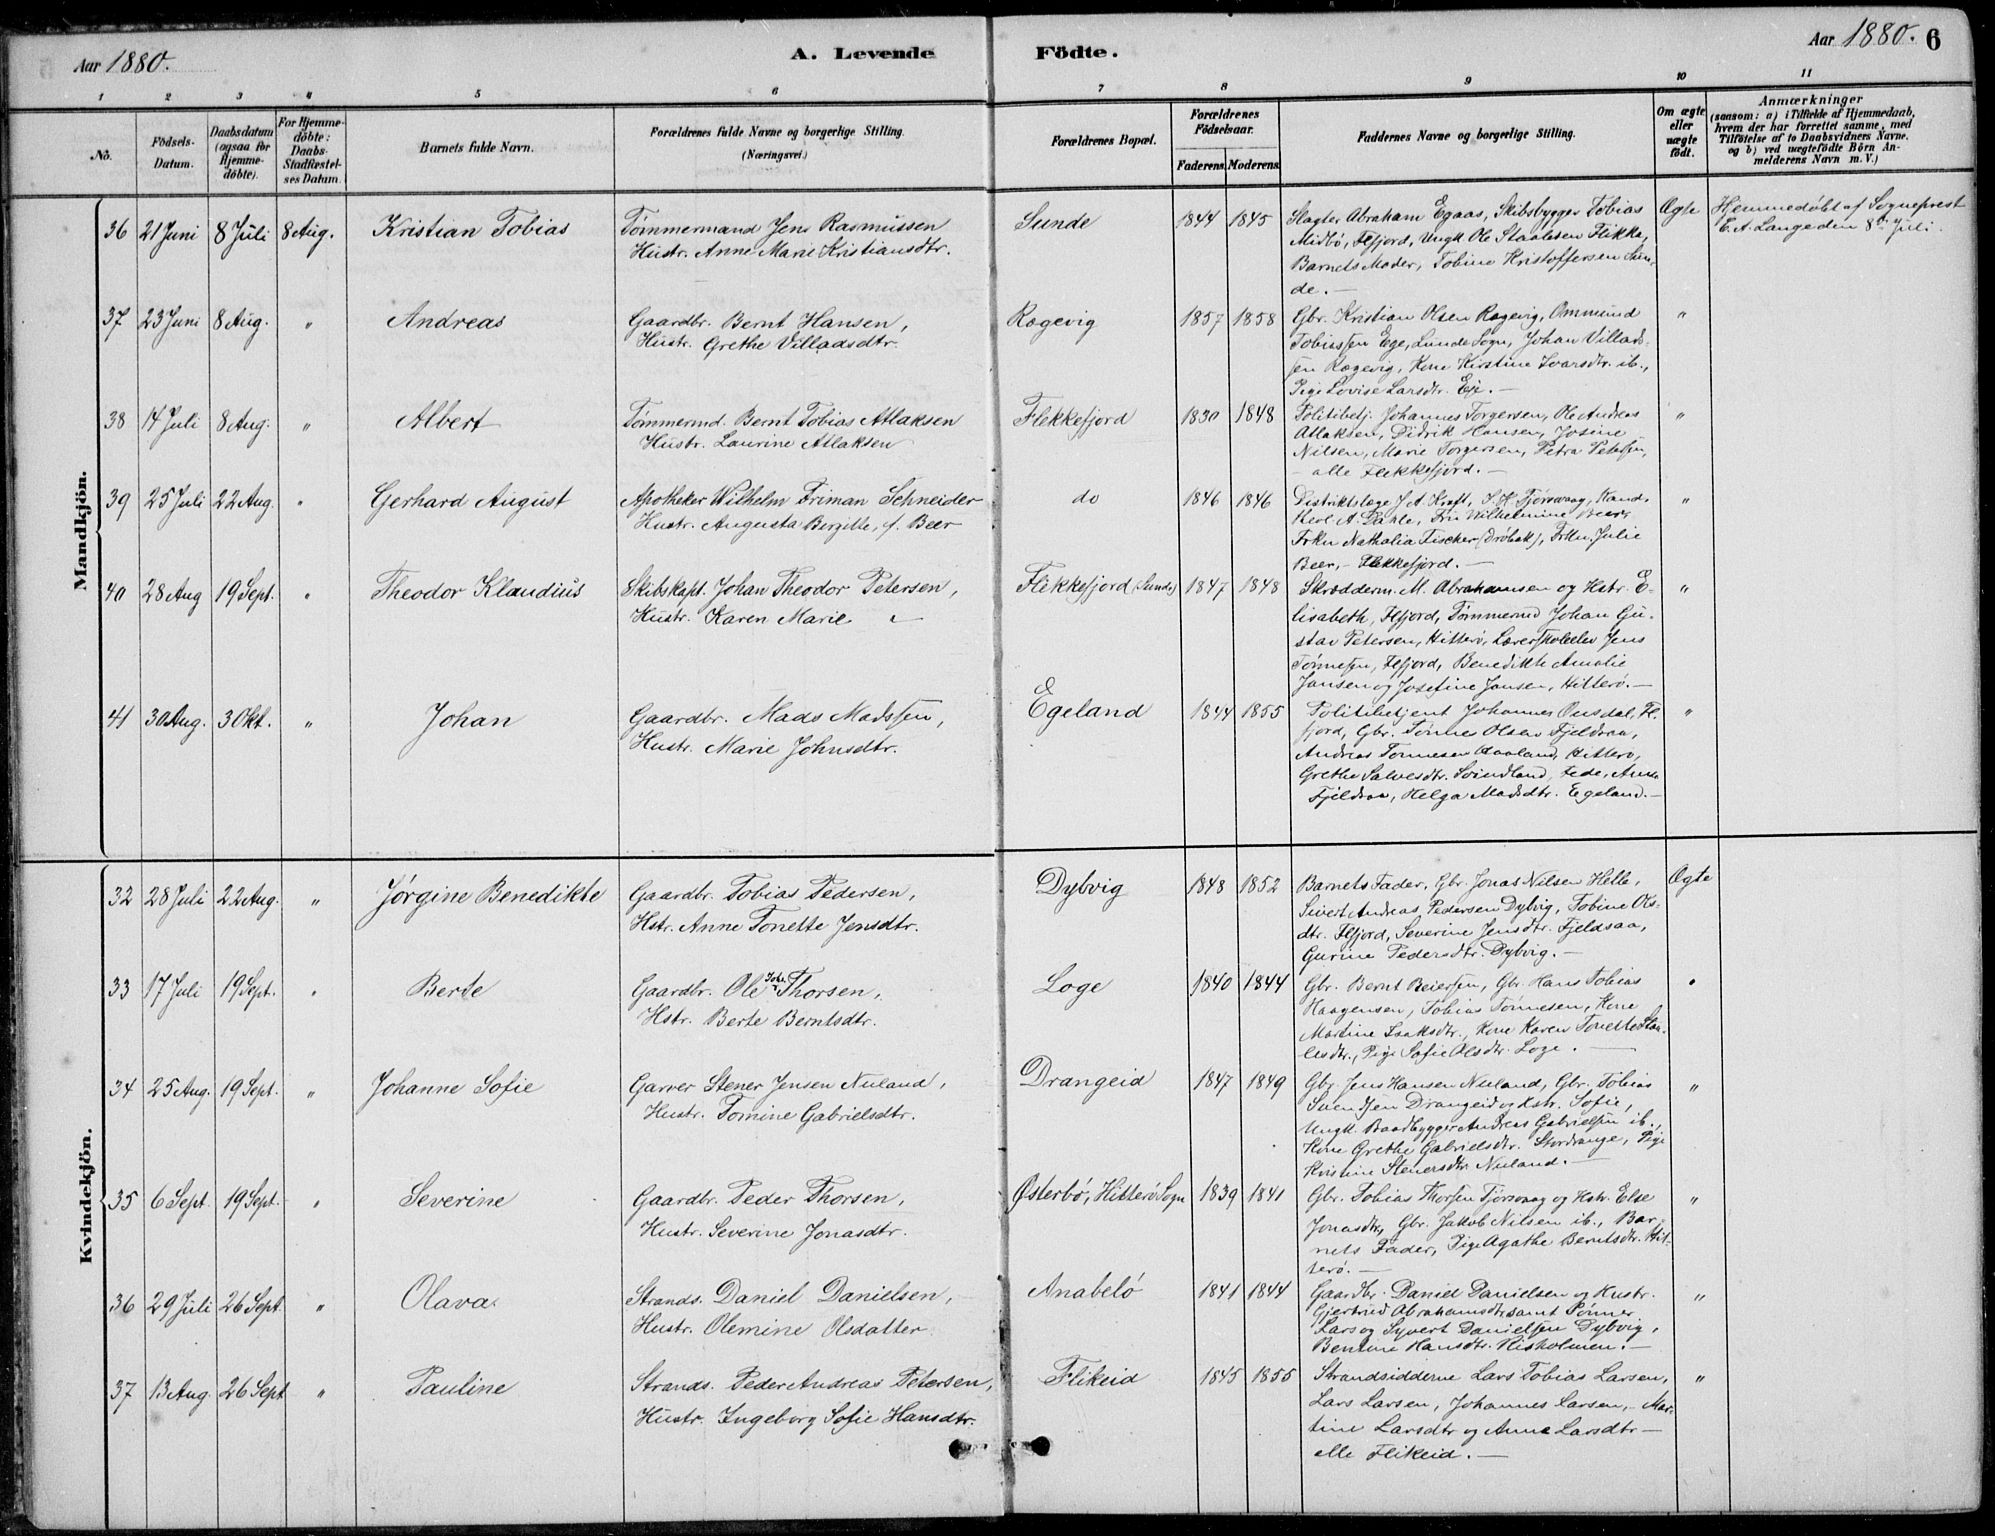 Aar 1880.
A. Levende
Födte.
Aar 1880.
6
1 2 3 4 5 6 7 8 9 10 11
No.
Födsels-
Datum.
Daabsdatum
(ogsaa for
Hjemme-
döbte).
For Hjemme-
döbte:
Daabs-
Stadfæstel-
ses Datum.
Barnets fulde Navn.
Forældrenes fulde Navne og borgerlige Stilling.
(Næringsvei.)
Forældrenes Bopæl.
Forældrenes
Födselsaar.
Faderens. Moderens.
Faddernes Navne og borgerlige Stilling.
Om ægte
eller
uægte
födt.
Anmærkninger
(saasom: a) i Tilfælde af Hjemmedaab,
hvem der har forrettet samme, med
Tilföielse af to Daabsvidners Navne.
og b) ved uægtefödte Börn An-
melderens Navn m. V.)
Mandkjön.
36 21 Juni 8 Juli 8 Aug. Kristian Tobias
Tømmermand Jens Rasmussen
Hustr. Anne Marie Kristiansdtr.
Sunde 1844 1845
Slagter Abraham Egaas, Skibsbygger Tobias
Midbö, Flfjord, Ungk Ole Staalesen Flikka,
Barnets Moder, Tobine Kristoffersen Sun-
de. —
Ægte
Hjemmedöbt af Sogneprest
E. A. Lange den 8de Juli.
37 23 Juni 8 Aug. " Andreas
Gaardbr. Bernt Hansen,
Hustr. Grethe Villadsdtr.
Rægevig 1857 1858
Gbr. Kristian Olsen Rægevig, Ommund
Tobiassen Ege, Lunde Sogn, Johan Villads-
sen Rægevig, Kone Kirstine Ivarsdtr. ib.,
Pige Lovise Larsdtr. Eie. —
"
38 14 Juli 8 Aug. " Albert
Tømmermd. Bernt Tobias Atlaksen
Hustr. Laurine Atlaksen
Flekkefjord 1830 1848
Politibetj. Johannes Torgersen, Ole Andreas
Atlaksen, Didrik Hansen, Josine
Nilsen, Marie Torgersen, Petra Petersen,
– alle Flekkefjord. —
"
39 25 Juli 22 Aug. " Gerhard August
Apotheker Wilhelm Friman Schneider
Hustr. Augusta Birgitte, f. Beer
do 1846 1846
Distriktslæge J. A. Kraft, S. H. Tjørsvaag, Kand.
theol. A. Dahle, Fru Wilhelmine Beer,
Frkn Nathalia Fischer (Dröbak), Frkn. Julie
Beer, – Flekkefjord. —
"
40 28 Aug 19 Sept. " Theodor Klaudius
Skibskapt. Johan Theodor Petersen,
Hustr. Karen Marie "
Flekkefjord (Sunde) 1847 1848
Skrædderm. M. Abrahamsen og Hstr. E-
lisabeth, Flfjord, Tømmermd Johan Gu-
stav Petersen, Hitterö, Lærerskoleelev Jens
Tönnesen, Flfjord, Benedikte Amalie
Jansen og Josefine Jansen, Hitterö. —
"
41 30 Aug. 3 Okt. " Johan
Gaardbr. Mads Madssen,
Hustr. Marie Johnsdtr.
Egeland 1844 1855
Politibetjent Johannes Ousdal, Fl.
fjord, Gbr. Tønnes Olsen Fjeldsaa,
Andreas Tönnesen Aaaland, Hitterö,
Grethe Salvesdtr. Svindland, Fede, Anne
Fjeldsaa, Helga Madsdtr. Egeland. —
"
Kvindekjön.
32 28 Juli 22 Aug. " Jørgine Benedikte
Gaardbr. Tobias Pedersen,
Hstr. Anne Tonette Jensdtr.
Dybvig 1848 1852
Barnets Fader, Gbr. Jonas Nilsen Helle,
Sivert Andreas Pedersen Dybvig, Tobine Ols-
dtr. Flfjord, Severine Jensdtr. Fjeldsaa,
Gurine Pedersdtr. Dybvig. —
Ægte
33 17 Juli 19 Sept. " Berte
Gaardbr. Ole Thorsen,
Hstr. Berte Berntsdtr.
Loge 1840 1844
Gbr. Bernt Beiersen, Gbr. Hans Tobias
Haagensen, Tobias Tønnesen, Kone
Martine Isaksdtr., Kone Karen Tonette Staa-
lesdtr., Pige Sofie Olsdtr. Loge. —
"
34 25 Aug. 19 Sept. " Johanne Sofie
Garver Stener Jensen Nuland,
Hustr. Tomine Gabrielsdtr.
Drangeid 1847 1849
Gbr. Jens Hansen Nuland, Gbr. Tobias
Svendsen Drangeid og Hstr. Sofie,
Ungk. Baadbygger Andreas Gabrielsen ib.,
Kone Grethe Gabrielsdtr. Stordrange, Pige
Kristine Stenersdtr. Nuland. —
"
35 6 Sept 19 Sept. " Severine
Gaardbr. Peder Thorsen,
Hustr. Severine Jonasdtr.
Østerbö, Hitterö Sogn 1839 1841
Gbr. Tobias Thorsen Tjörsvaag og Hstr. Else
Jonasdtr, Gbr. Jakob Nilsen ib., Bar-
nets Fader, Pige Agathe Berntsdtr. Hit-
terö. —
"
36 29 Juli 26 Sept. " Olava.
Strands. Daniel Danielsen,
Hustr. Olemine Olsdatter
Anabelö 1841 1844
Gaardbr. Daniel Danielsen og Hustr.
Gjertrud Abrahamsdtr samt Sønner
Lars og Syvert Danielsen Dybvig,
Bentine Hansdtr. Risholmen. —
"
37 13 Aug. 26 Sept " Pauline
Strands. Peder Andreas Petersen,
Hustr. Ingeborg Sofie Hansdtr.
Flikeid 1845 1855
Strandsidderne Lars Tobias Larsen,
Lars Larsen, Johannes Larsen, – Mar-
tine Larsdtr og Anne Larsdtr —
alle Flikeid. —
"